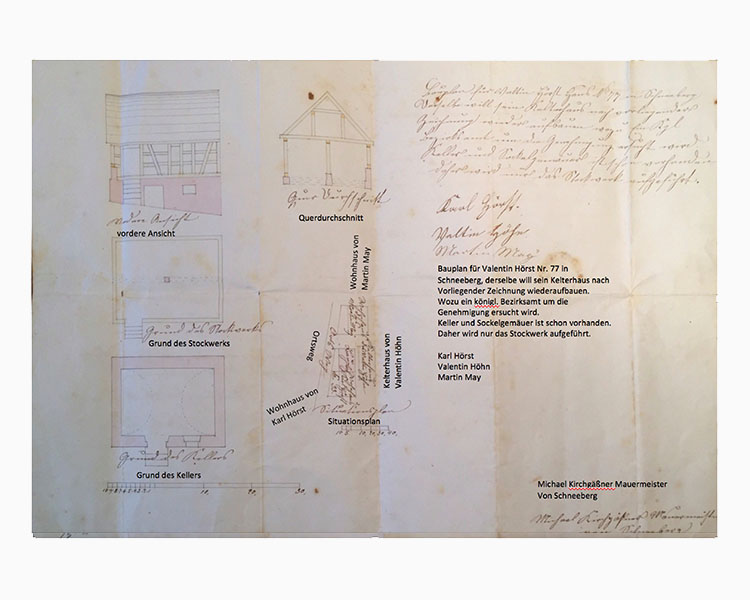 Bauplan für Valtin Hörst Haus No 77 in Schneeberg
Derselbe will sein Kelterhaus nach vorliegender
Zeichnung wieder aufbaun wozu ein Kgl
Bezirksamt um die Genehmigung ersucht wird
Keller und Sockelgemäuer ist schon vorhanden
daher wird nur das Stockwerk aufgeführt.
Karl Hörst.
Valtin Höhn
Martin May
vordere Ansicht
vordere Ansicht
Quer Durchschnitt
Querdurchschnitt
Grund des Stockwerks
Grund des Stockwerks
Wohnhaus von
Martin May
Ortsweg
Kelterhaus von
Valentin Höhn
Wohnhaus von
Karl Hörst
Situationsplan
Situationsplan
Grund des Kellers
Grund des Kellers
10. 20. 30.
Bauplan für Valentin Hörst Nr. 77 in
Schneeberg, derselbe will sein Kelterhaus nach
Vorliegender Zeichnung wiederaufbauen.
Wozu ein königl. Bezirksamt um die
Genehmigung ersucht wird.
Keller und Sockelgemäuer ist schon vorhanden.
Daher wird nur das Stockwerk aufgeführt.
Karl Hörst
Valentin Höhn
Martin May
Michael Kirchgäßner Mauermeister
Von Schneeberg
Michael Kirchgäßner Mauermeister
von Schneeberg